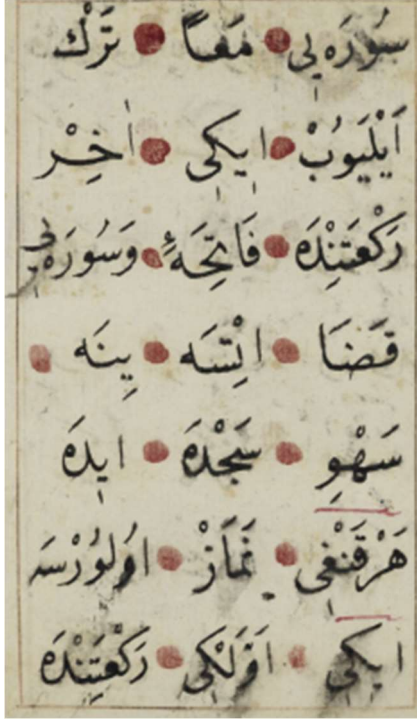 سُورَه‌يِى مَعًا تَرْك
اَيْلَيُوبْ ايكِى اٰخِرْ
رَكْعَتِنْدَه فَاتِحَهٔ وَسُورَه‌يِى
قَضَا اتْسَه يِنَه
سَهْوِ سَجْدَه ايدَه
هَرْقَنْغِى نَمَازْ اوُلُورْسَه
ايكِى اَوَّلْكِى رَكْعَتِنْدَه